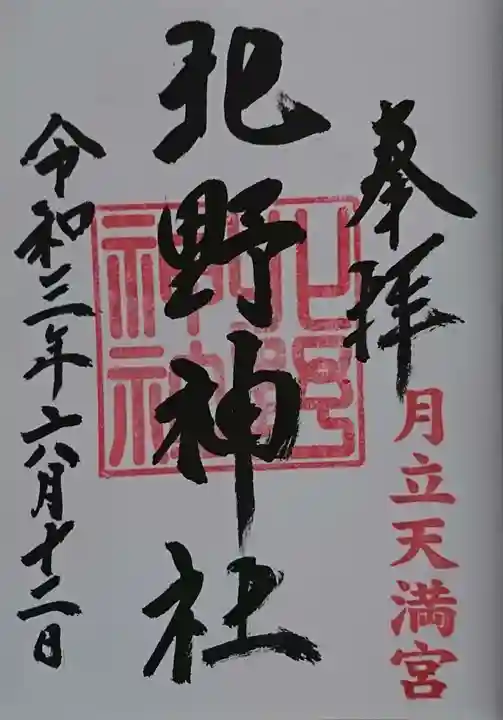 奉拝
月立天満宮
北野神社
北野
神社
令和三年六月十二日